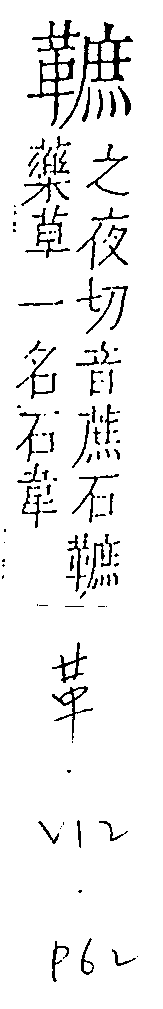 䩾
之夜切音蔗石䩾
藥草一名石韋
革
V12
P62